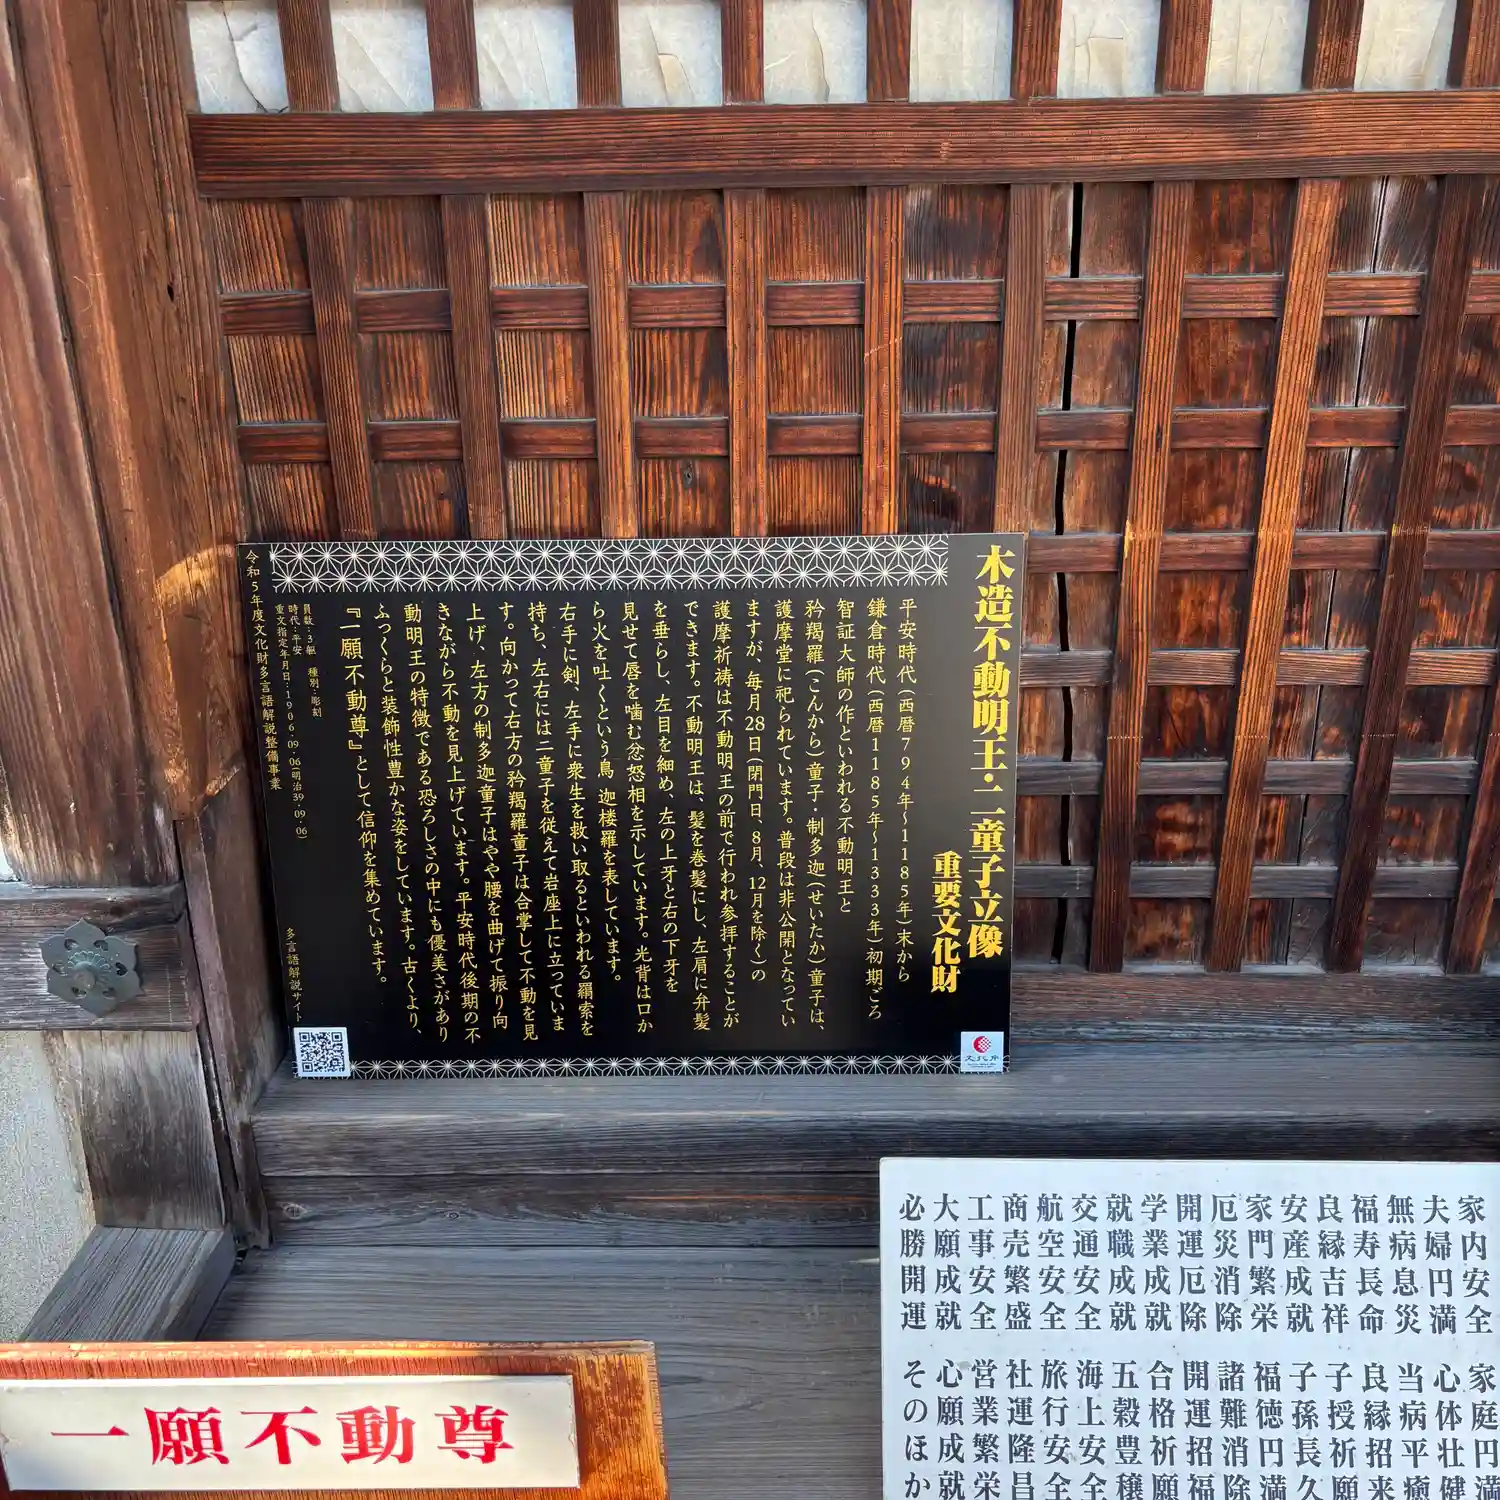 木造不動明王・二童子立像
重要文化財
平安時代(西暦794年〜1185年)末から
鎌倉時代(西暦1185年〜1333年)初期ごろ
智証大師の作といわれる不動明王と
矜羯羅(こんから)童子・制多迦(せいたか)童子は、
護摩堂に祀られています。普段は非公開となってい
ますが、毎月28日(閉門日、8月、12月を除く)の
護摩祈祷は不動明王の前で行われ参拝することが
できます。不動明王は、髪を巻髪にし、左肩に弁髪
を垂らし、左目を細め、左の上牙と右の下牙を
見せて唇を噛む忿怒相を示しています。光背は口か
ら火を吐くという鳥 迦楼羅を表しています。
右手に剣、左手に衆生を救い取るといわれる羂索を
持ち、左右には二童子を従えて岩座上に立っていま
す。向かって右方の矜羯羅童子は合掌して不動を見
上げ、左方の制多迦童子はやや腰を曲げて振り向
きながら不動を見上げています。平安時代後期の不
動明王の特徴である恐ろしさの中にも優美さがあり
ふっくらと装飾性豊かな姿をしています。古くより、
『一願不動尊』として信仰を集めています。
員数:3躯 種別:彫刻
時代:平安
重文指定年月日:1906.09.06(明治39.09.06)
令和5年度文化財多言語解説整備事業
多言語解説サイト
文化庁
家内安全
夫婦円満
無病息災
福寿長命
良縁吉祥
安産成就
家門繁栄
厄災消除
開運厄除
学業成就
就職成就
交通安全
航空安全
商売繁盛
工事安全
大願成就
必勝開運
家庭円満
心体壮健
当病平癒
良縁招来
子授祈願
子孫長久
福徳円満
諸難消除
開運招福
合格祈願
五穀豊穣
海上安全
旅行安全
社運隆昌
営業繁栄
心願成就
そのほか
一願不動尊